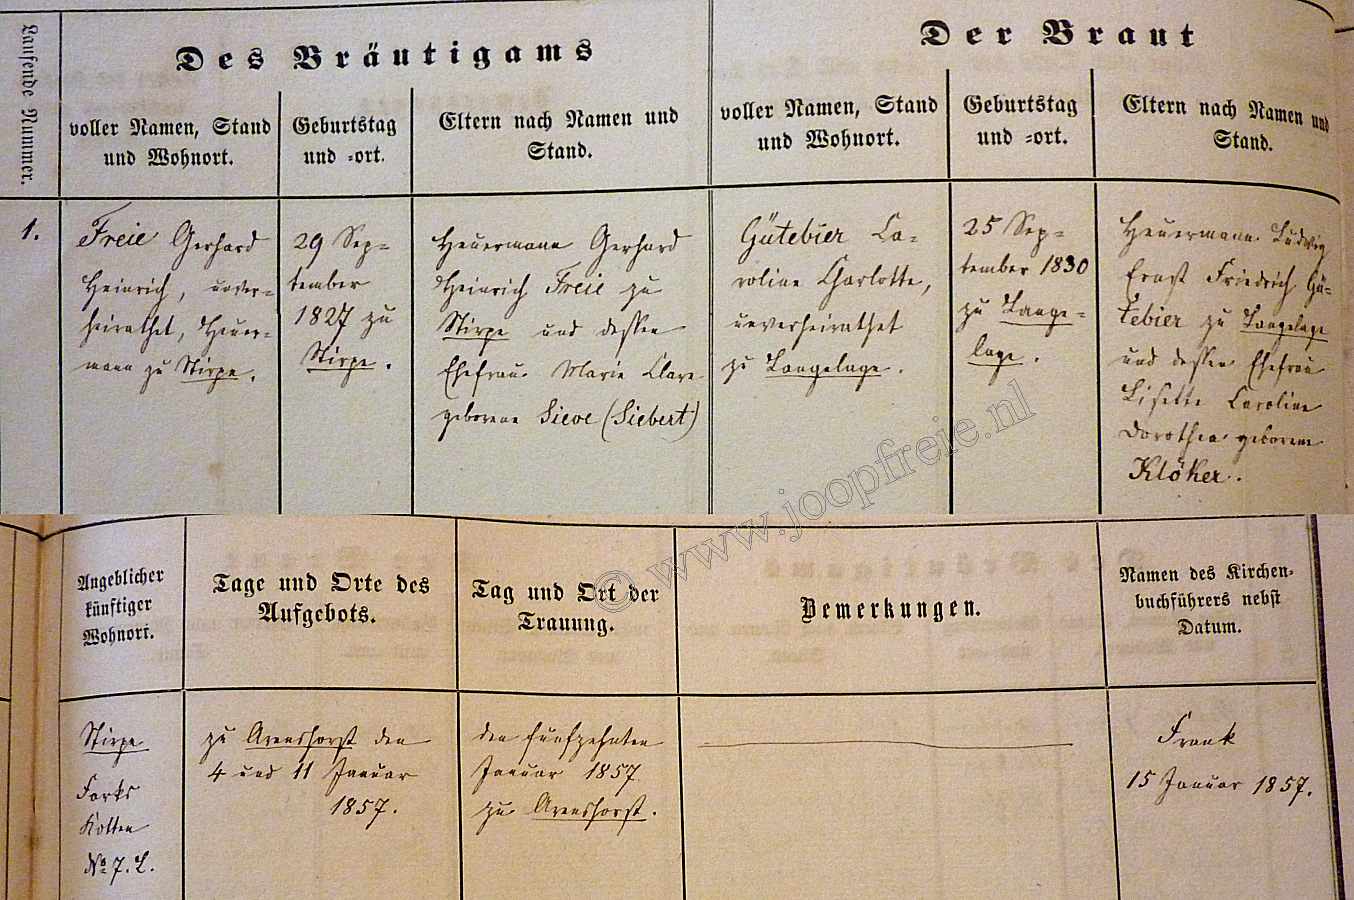 Laufende Nummer.
Des Bräutigams
voller Namen, Stand
und Wohnort.
Geburtstag
und =ort.
Eltern nach Namen und
Stand.
Der Braut
voller Namen, Stand
und Wohnort.
Geburtstag
und =ort.
Eltern nach Namen und
Stand.
1.
Freie Gerhard
Heinrich, unver-
heirathet, Heuer-
mann zu Stirpe.
29 Sep-
tember
1827 zu
Stirpe.
Heuermann Gerhard
Heinrich Freie zu
Stirpe und dessen
Ehefrau Marie Clare
geborene Sieve (Siebert)
Gütebier Ca-
roline Charlotte,
unverheirathet
zu Langelage.
25 Sep-
tember 1830
zu Lange-
lage.
Heuermann Ludwig
Ernst Friedrich Gü-
tebier zu Langelage
und dessen Ehefrau
Lisette Caroline
Dorothea geborene
Klöker.
© www.joopfreie.nl
Angeblicher
künftiger
Wohnort.
Tage und Orte des
Aufgebots.
Tag und Ort der
Trauung.
Bemerkungen.
Namen des Kirchen-
buchführers nebst
Datum.
Stirpe
Farks
Kotten
No 7. L.
zu Arenshorst den
4 und 11 Januar
1857.
den fünfzehnten
Januar 1857
zu Arenshorst.
Frank
15 Januar 1857.